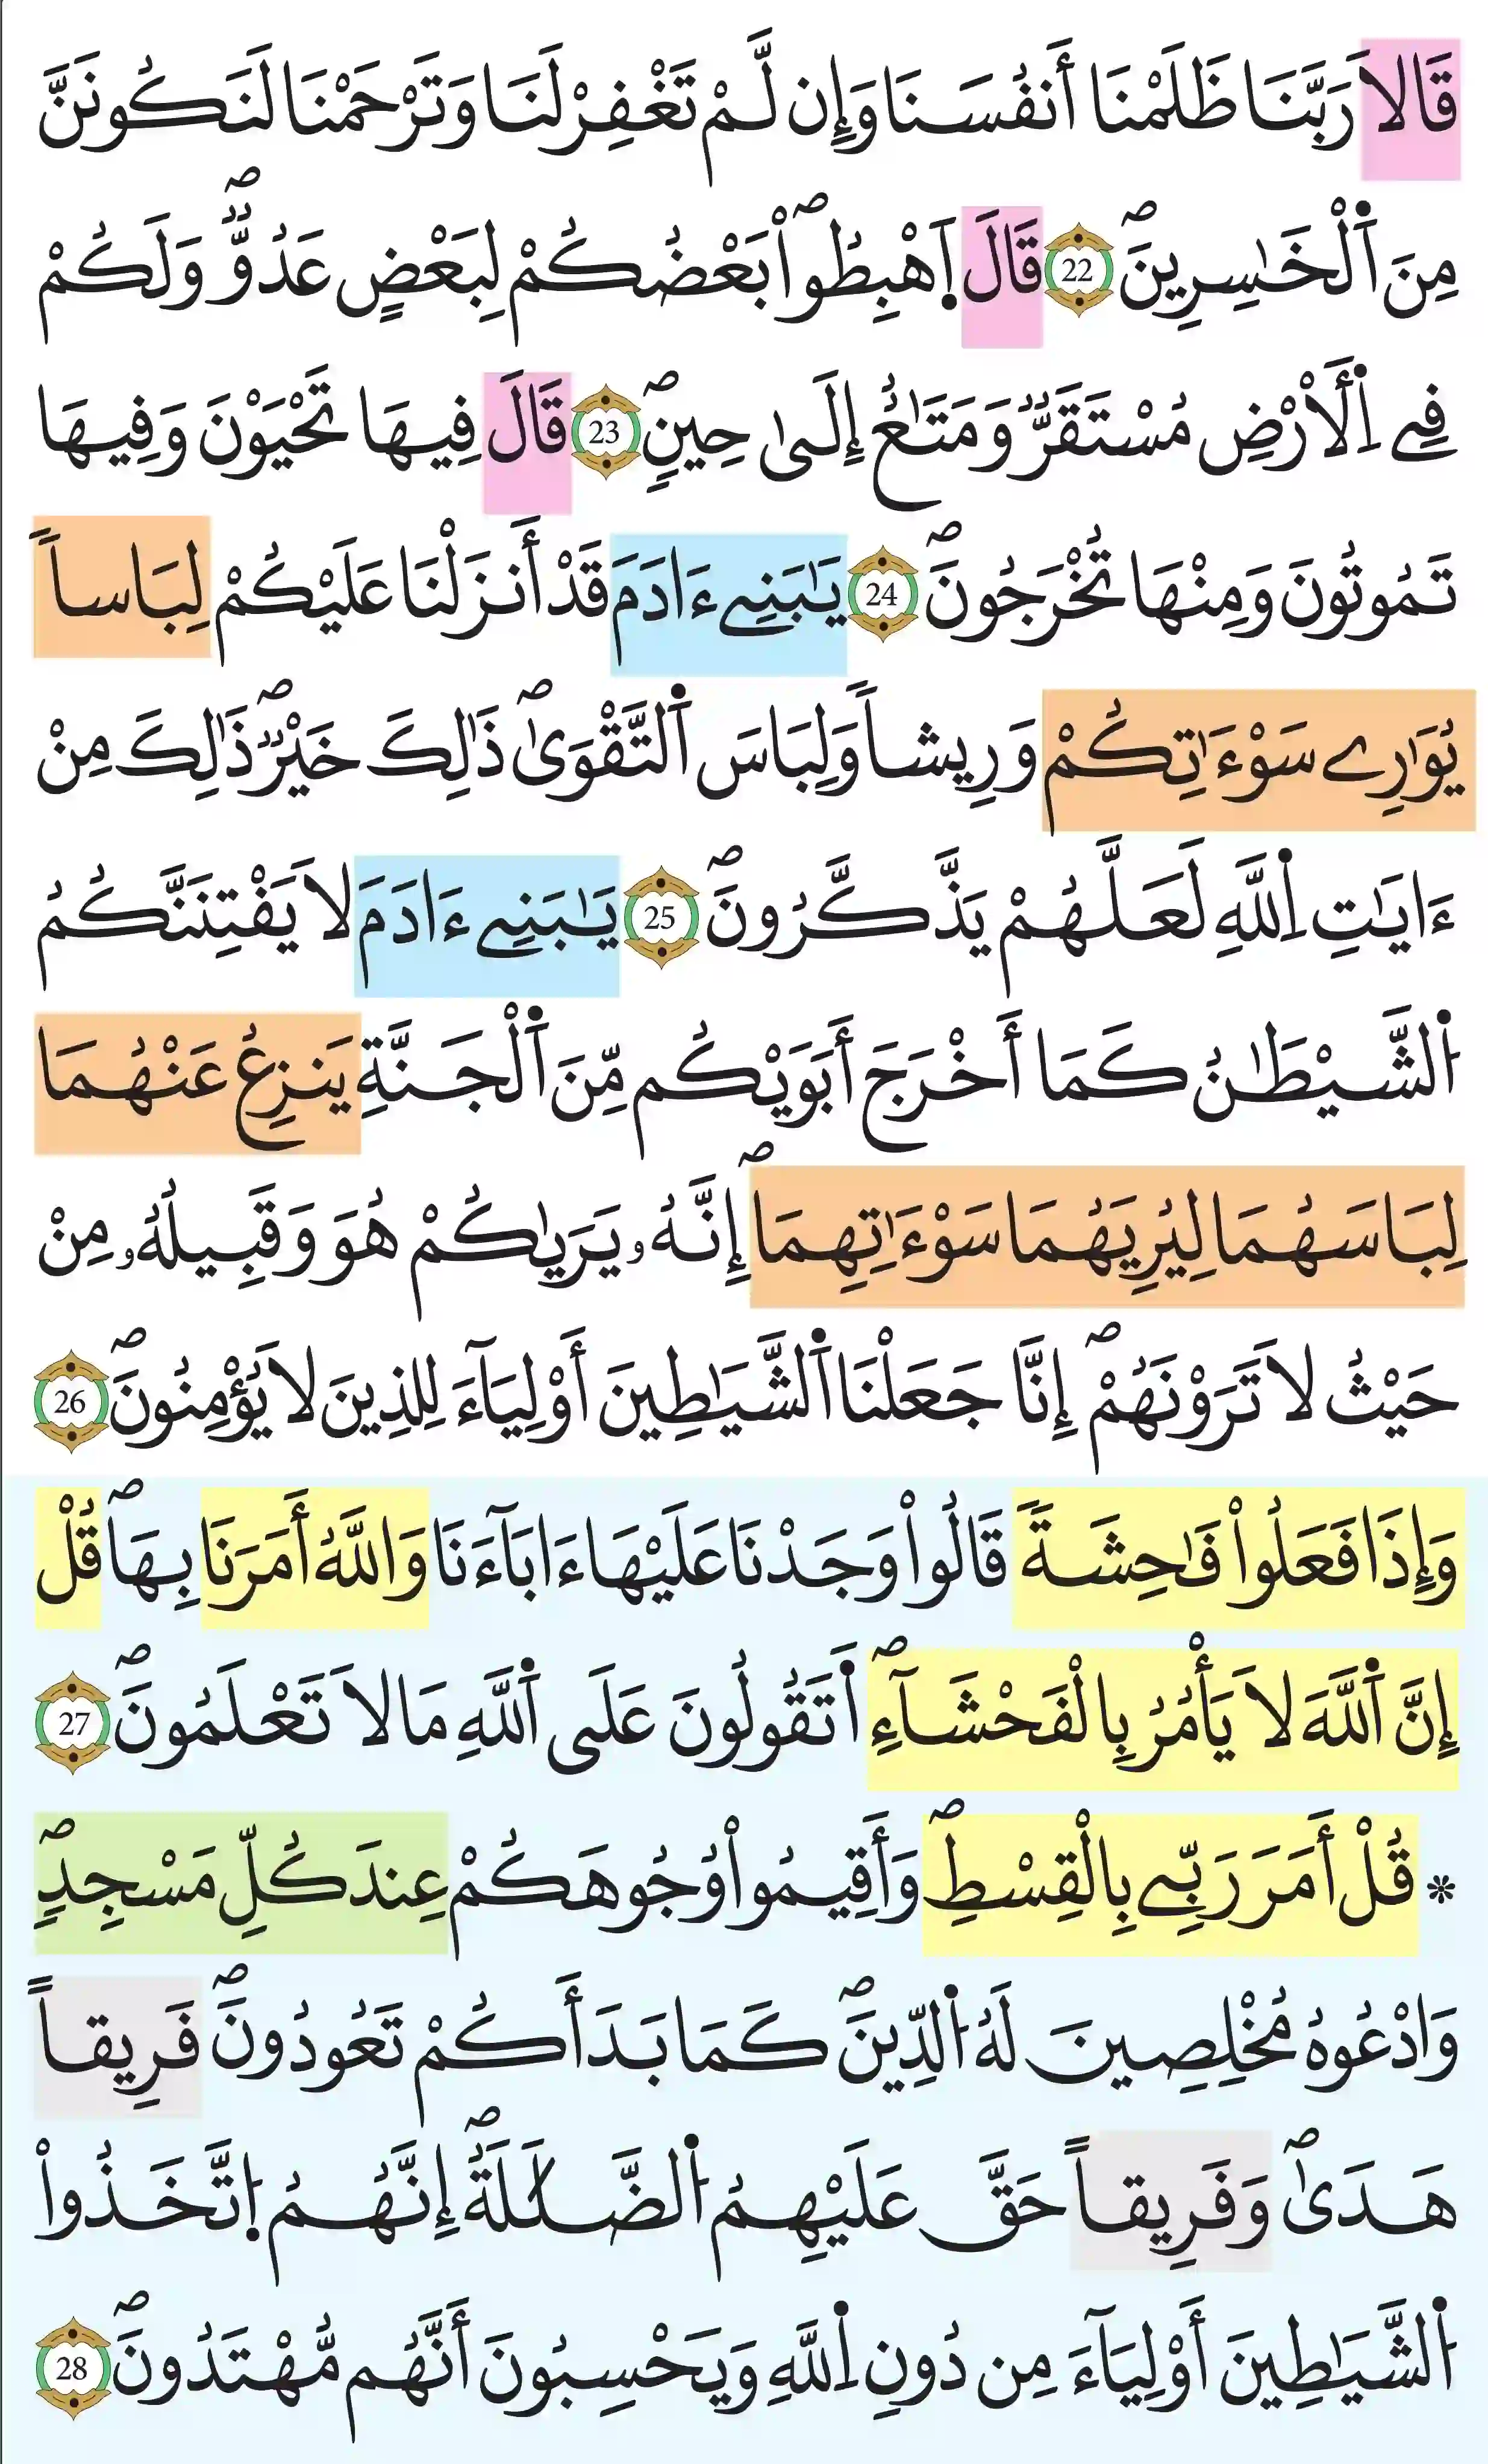 قَالَا رَبَّنَا ظَلَمْنَا أَنفُسَنَا وَإِن لَّمْ تَغْفِرْ لَنَا وَتَرْحَمْنَا لَنَكُونَنَّ
مِنَ اَ۬لْخَٰسِرِينَۖ 22 قَالَ اَ۪هْبِطُواْۖ بَعْضُكُمْ لِبَعْضٍ عَدُوّٞۖ وَلَكُمْ
فِے اِ۬لَارْضِ مُسْتَقَرّٞ وَمَتَٰعٌ إِلَىٰ حِينٖۖ 23 قَالَ فِيهَا تَحْيَوْنَ وَفِيهَا
تَمُوتُونَ وَمِنْهَا تُخْرَجُونَۖ 24 يَٰبَنِےٓ ءَادَمَ قَدْ أَنزَلْنَا عَلَيْكُمْ لِبَاساٗ
يُوَٰرِے سَوْءَٰتِكُمْ وَرِيشاٗ وَلِبَاسَ اَ۬لتَّقْوَىٰۖ ذَٰلِكَ خَيْرٞۖ ذَٰلِكَ مِنْ
ءَايَٰتِ اِ۬للَّهِ لَعَلَّهُمْ يَذَّكَّرُونَۖ 25 يَٰبَنِےٓ ءَادَمَ لَا يَفْتِنَنَّكُمُ
اُ۬لشَّيْطَٰنُ كَمَا أَخْرَجَ أَبَوَيْكُم مِّنَ اَ۬لْجَنَّةِ يَنزِعُ عَنْهُمَا
لِبَاسَهُمَا لِيُرِيَهُمَا سَوْءَٰتِهِمَاۖ إِنَّهُۥ يَرَيٰكُمْ هُوَ وَقَبِيلُهُۥ مِنْ
حَيْثُ لَا تَرَوْنَهُمْۖ إِنَّا جَعَلْنَا اَ۬لشَّيَٰطِينَ أَوْلِيَآءَ لِلذِينَ لَا يُؤْمِنُونَۖ 26
وَإِذَا فَعَلُواْ فَٰحِشَةٗ قَالُواْ وَجَدْنَا عَلَيْهَا ءَابَآءَنَا وَاللَّهُ أَمَرَنَا بِهَاۖ قُلْ
إِنَّ اَ۬للَّهَ لَا يَأْمُرُ بِالْفَحْشَآءِۖ اَ۬تَقُولُونَ عَلَى اَ۬للَّهِ مَا لَا تَعْلَمُونَۖ 27
* قُلْ أَمَرَ رَبِّے بِالْقِسْطِۖ وَأَقِيمُواْ وُجُوهَكُمْ عِندَ كُلِّ مَسْجِدٖۖ
وَادْعُوهُ مُخْلِصِينَ لَهُ اُ۬لدِّينَۖ كَمَا بَدَأَكُمْ تَعُودُونَۖ فَرِيقاً
هَدَىٰۖ وَفَرِيقاً حَقَّ عَلَيْهِمُ اُ۬لضَّلَٰلَةُۖ إِنَّهُمُ اُ۪تَّخَذُواْ
اُ۬لشَّيَٰطِينَ أَوْلِيَآءَ مِن دُونِ اِ۬للَّهِ وَيَحْسِبُونَ أَنَّهُم مُّهْتَدُونَۖ 28